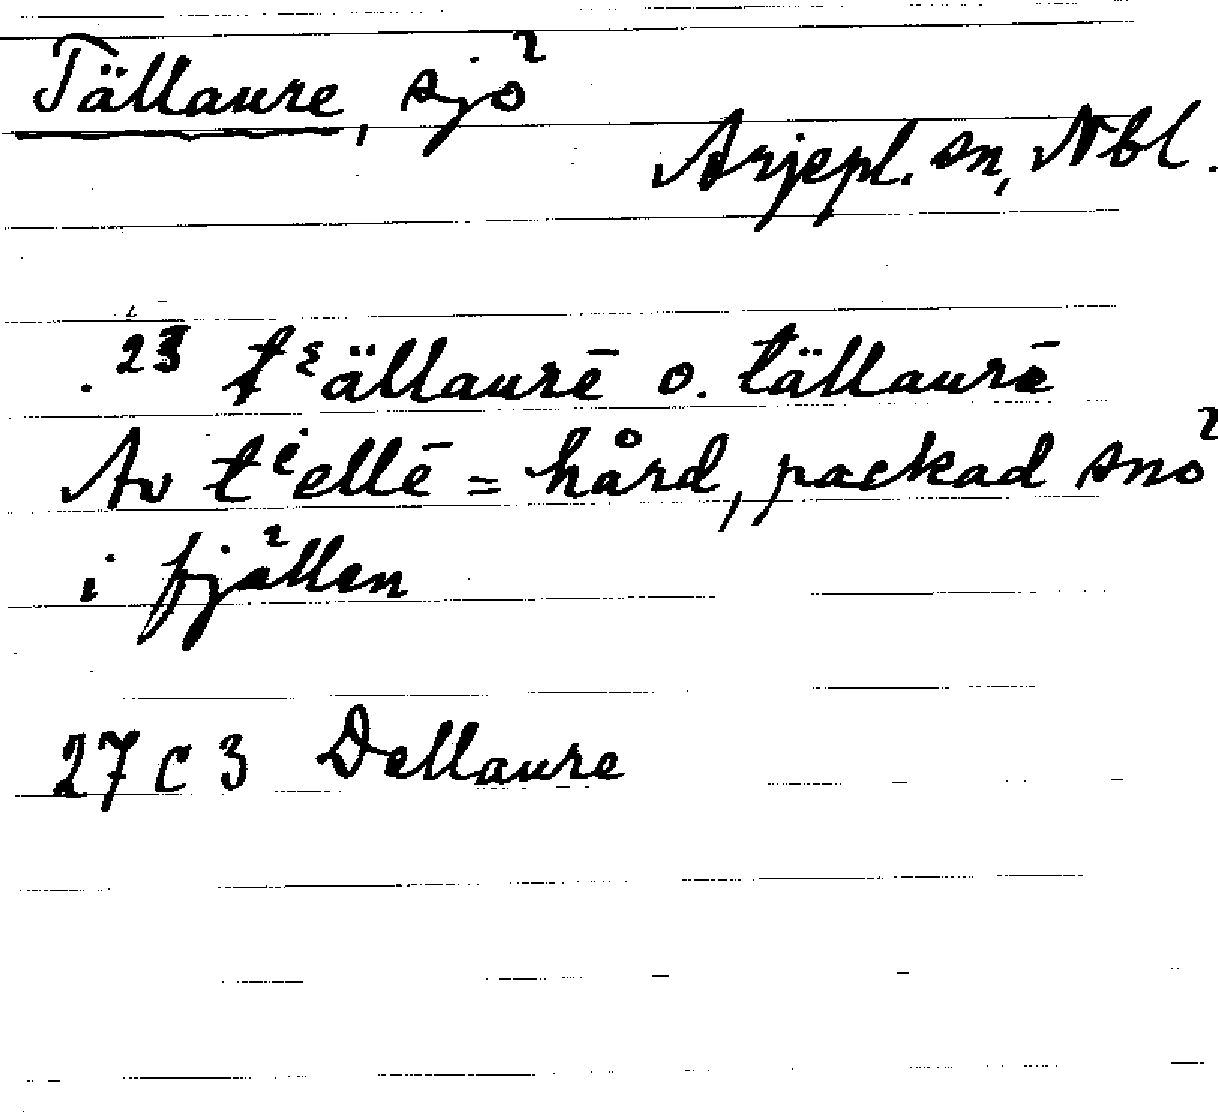 Tällaure, sjö
Arjepl. sn, Nbl.
. 23 tˁällaurē o. tällaurē
Av tʿellē = hård, packad snö
i fjällen
27 C 3 Dellaure